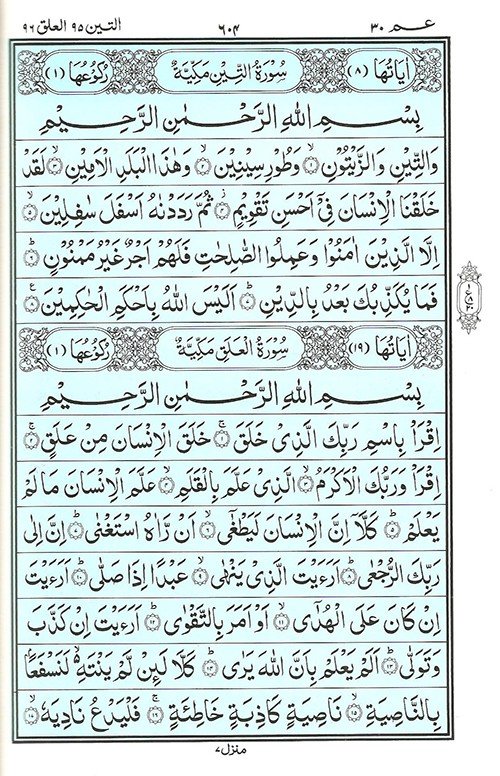 عـــم ٣٠ ٦٠٤ التين ٩٥ العلق ٩٦
اٰیَاتُهَا (٨) سُوْرَةُ التِّيْنِ مَكِّيَّةٌ رُكُوْعُهَا (١)
بِسْمِ اللّٰهِ الرَّحْمٰنِ الرَّحِيْمِ
وَالتِّيْنِ وَالزَّيْتُوْنِ ۙ﴿١﴾ وَطُوْرِ سِيْنِيْنَ ۙ﴿٢﴾ وَهٰذَا الْبَلَدِ الْاَمِيْنِ ۙ﴿٣﴾ لَقَدْ
خَلَقْنَا الْاِنْسَانَ فِيْۤ اَحْسَنِ تَقْوِيْمٍ ﴿٤﴾ ثُمَّ رَدَدْنٰهُ اَسْفَلَ سٰفِلِيْنَ ۙ﴿٥﴾
اِلَّا الَّذِيْنَ اٰمَنُوْا وَعَمِلُوا الصّٰلِحٰتِ فَلَهُمْ اَجْرٌ غَيْرُ مَمْنُوْنٍ ﴿٦﴾
فَمَا يُكَذِّبُكَ بَعْدُ بِالدِّيْنِ ﴿٧﴾ اَلَيْسَ اللّٰهُ بِاَحْكَمِ الْحٰكِمِيْنَ ﴿٨﴾
اٰیَاتُهَا (١٩) سُوْرَةُ الْعَلَقِ مَكِّيَّةٌ رُكُوْعُهَا (١)
بِسْمِ اللّٰهِ الرَّحْمٰنِ الرَّحِيْمِ
اِقْرَاْ بِاسْمِ رَبِّكَ الَّذِيْ خَلَقَ ۚ﴿١﴾ خَلَقَ الْاِنْسَانَ مِنْ عَلَقٍ ۚ﴿٢﴾
اِقْرَاْ وَرَبُّكَ الْاَكْرَمُ ۙ﴿٣﴾ الَّذِيْ عَلَّمَ بِالْقَلَمِ ۙ﴿٤﴾ عَلَّمَ الْاِنْسَانَ مَا لَمْ
يَعْلَمْ ﴿٥﴾ كَلَّاۤ اِنَّ الْاِنْسَانَ لَيَطْغٰۤى ۙ﴿٦﴾ اَنْ رَّاٰهُ اسْتَغْنٰى ﴿٧﴾ اِنَّ اِلٰى
رَبِّكَ الرُّجْعٰى ﴿٨﴾ اَرَءَيْتَ الَّذِيْ يَنْهٰى ۙ﴿٩﴾ عَبْدًا اِذَا صَلّٰى ﴿١٠﴾ اَرَءَيْتَ
اِنْ كَانَ عَلَى الْهُدٰۤى ۙ﴿١١﴾ اَوْ اَمَرَ بِالتَّقْوٰى ﴿١٢﴾ اَرَءَيْتَ اِنْ كَذَّبَ
وَتَوَلّٰى ﴿١٣﴾ اَلَمْ يَعْلَمْ بِاَنَّ اللّٰهَ يَرٰى ﴿١٤﴾ كَلَّا لَئِنْ لَّمْ يَنْتَهِ ۙ لَنَسْفَعًا
بِالنَّاصِيَةِ ﴿١٥﴾ نَاصِيَةٍ كَاذِبَةٍ خَاطِئَةٍ ۚ﴿١٦﴾ فَلْيَدْعُ نَادِيَهٗ ﴿١٧﴾
منزل ٧